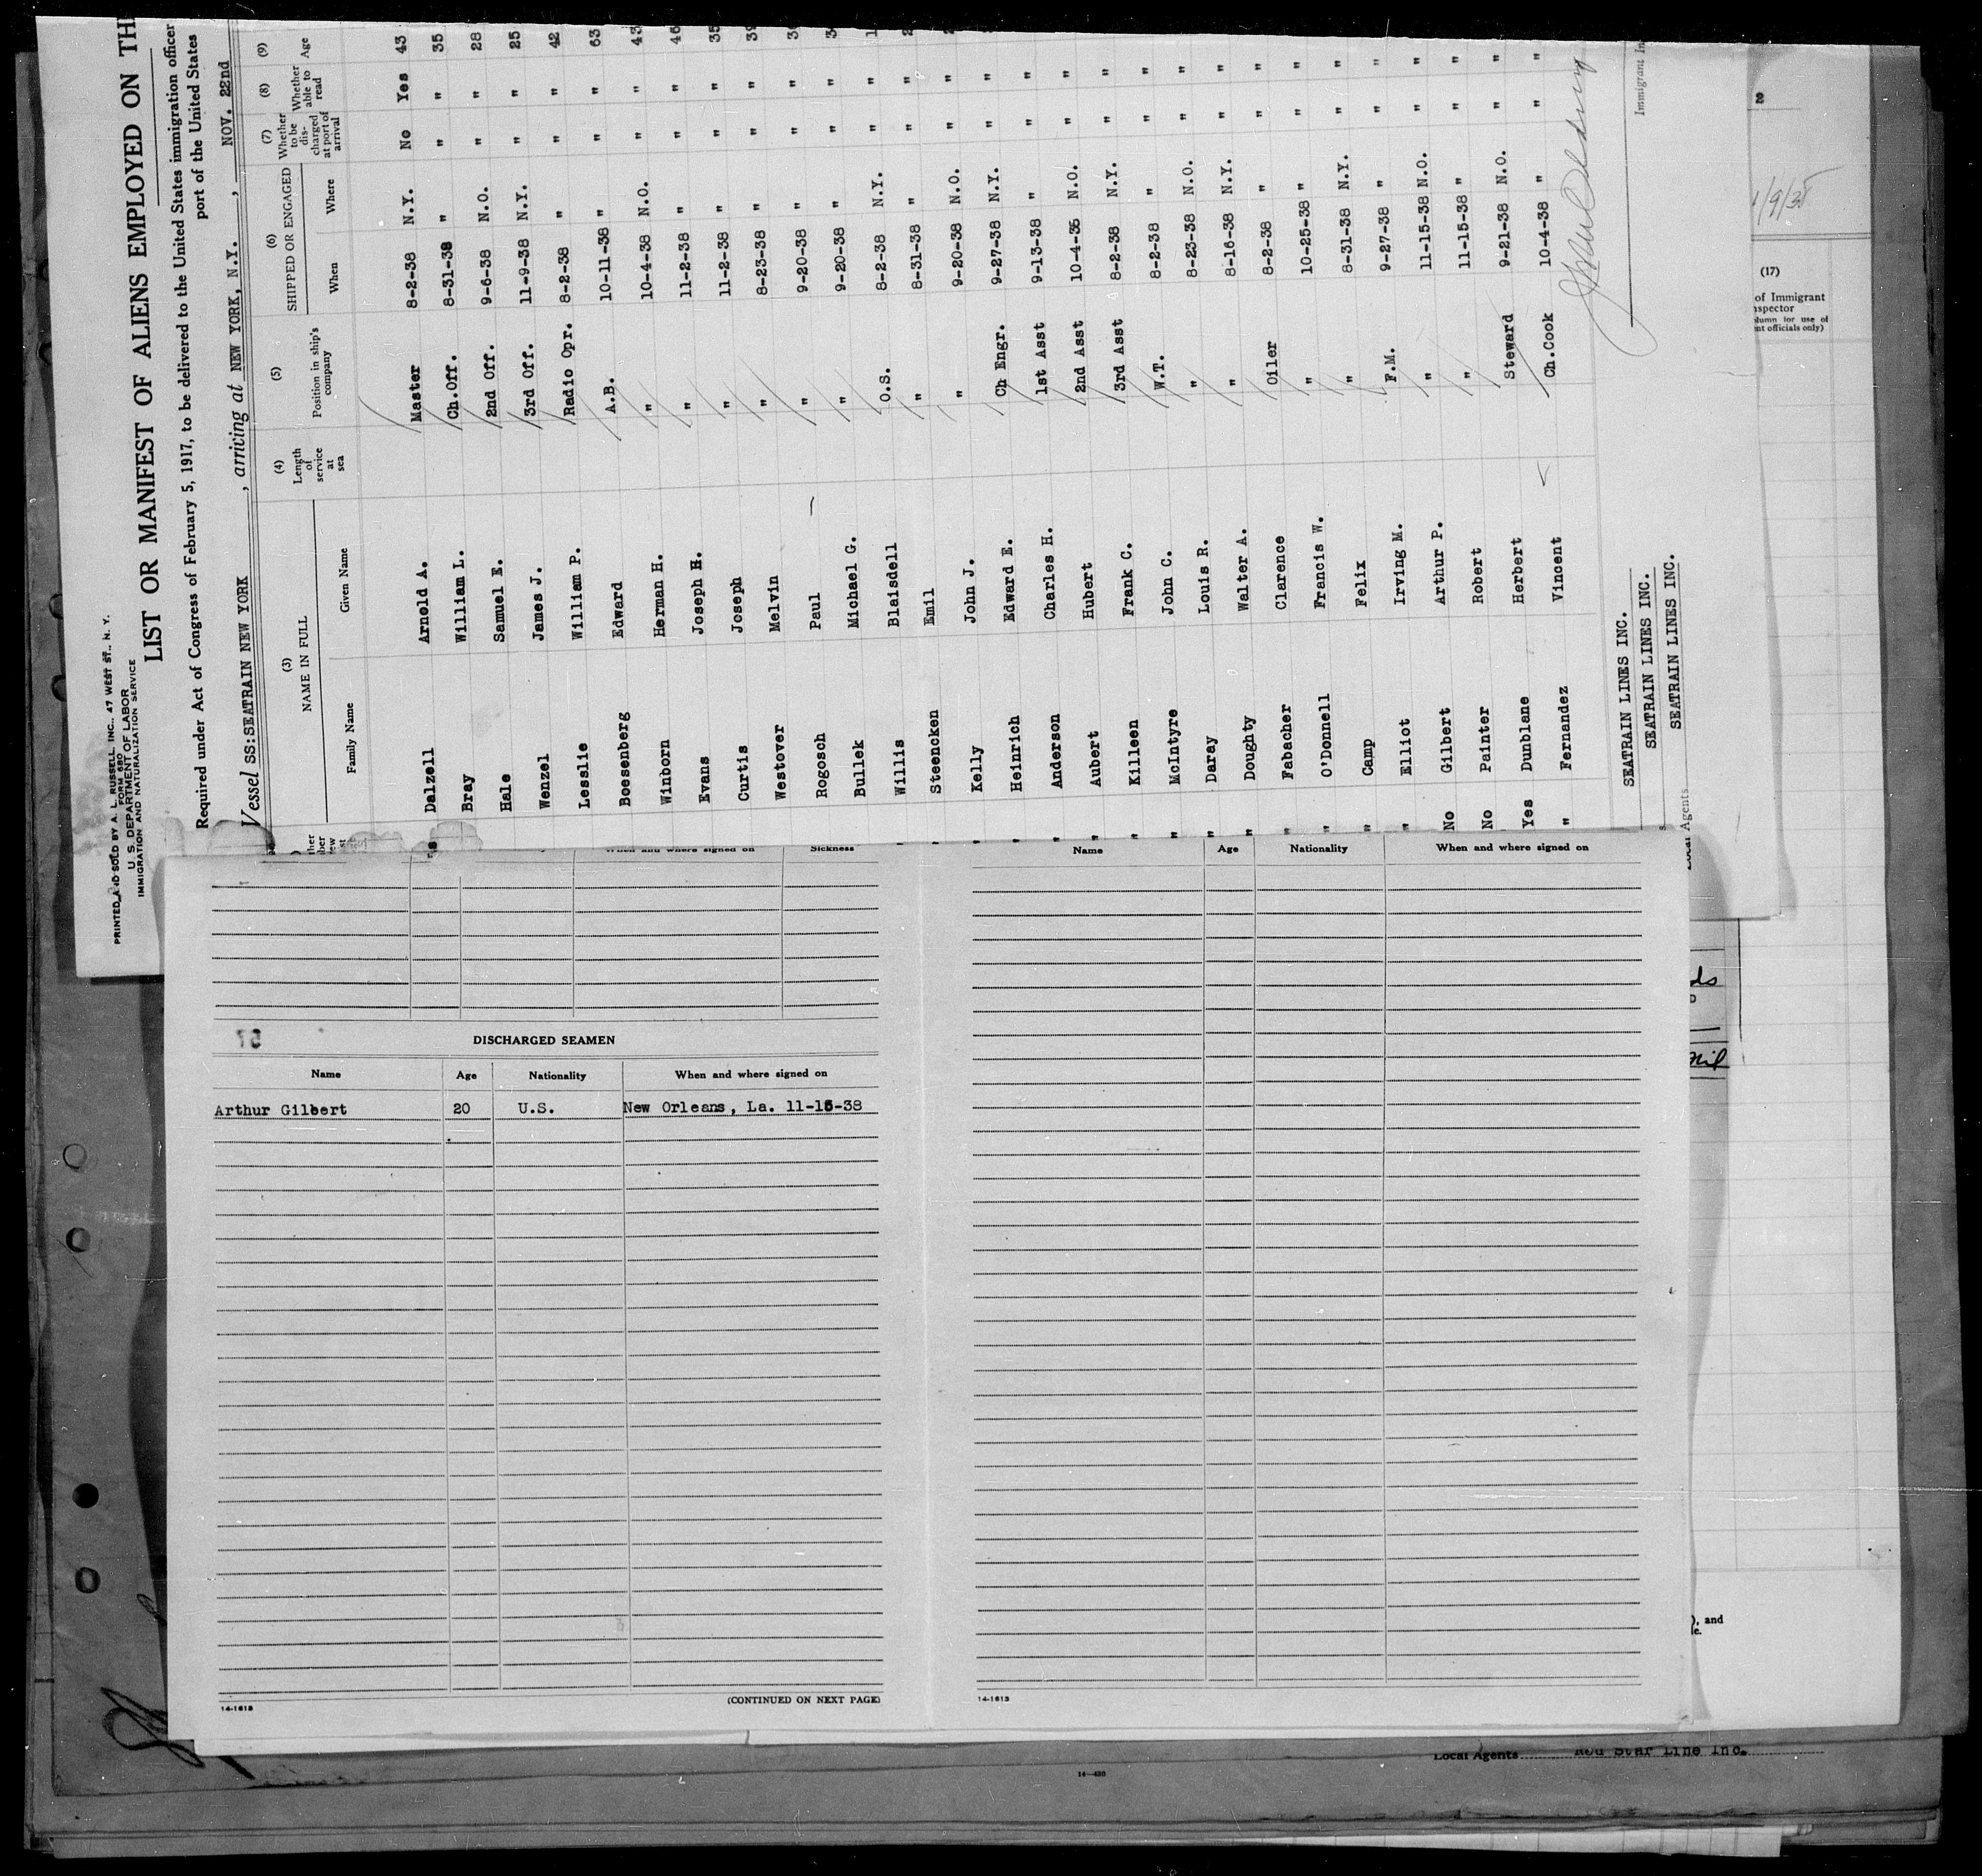 PRINTED AND SOLD BY A. L. RUSSELL, INC., 47 WEST ST., N. Y.
FORM 680
U. S. DEPARTMENT OF LABOR
IMMIGRATION AND NATURALIZATION SERVICE
LIST OR MANIFEST OF ALIENS EMPLOYED ON TH
Required under Act of Congress of February 5, 1917, to be delivered to the United States immigration officer
port of the United States
Vessel SS:SEATRAIN NEW YORK , arriving at NEW YORK, N.Y. , NOV. 22nd
(3) (4) (5) (6) (7) (8) (9)
NAME IN FULL Length of service at sea Position in ship's company SHIPPED OR ENGAGED Whether to be discharged at port of arrival Whether able to read Age
Family Name Given Name When Where
Dalzell Arnold A. Master 8-2-38 N.Y. No Yes 43
Bray William L. Ch.Off. 8-31-38 " " " 35
Hale Samuel E. 2nd Off. 9-6-38 N.O. " " 28
Wenzel James J. 3rd Off. 11-9-38 N.Y. " " 25
Lesslie William P. Radio Opr. 8-2-38 " " " 42
Boesenberg Edward A.B. 10-11-38 " " " 63
Winborn Herman H. " 10-4-38 N.O. " " 43
Evans Joseph H. " 11-2-38 " " " 46
Curtis Joseph " 11-2-38 " " " 35
Westover Melvin " 8-23-38 " " " 39
Rogosch Paul " 9-20-38 " " "
Bullek Michael G. " 9-20-38 " " "
Willis Blaisdell O.S. 8-2-38 N.Y. " "
Steencken Emil " 8-31-38 " " "
Kelly John J. " 9-20-38 N.O. " "
" Heinrich Edward E. Ch Engr. 9-27-38 N.Y. " "
" Anderson Charles H. 1st Asst 9-13-38 " " "
" Aubert Hubert 2nd Asst 10-4-38 N.O. " "
" Killeen Frank C. 3rd Asst 8-2-38 N.Y. " "
" McIntyre John C. W.T. 8-2-38 " " "
" Daray Louis R. " 8-23-38 N.O. " "
" Doughty Walter A. " 8-16-38 N.Y. " "
" Fabacher Clarence Oiler 8-2-38 " " "
" O'Donnell Francis W. " 10-25-38 " " "
" Camp Felix " 8-31-38 N.Y. " "
" Elliot Irving M. F.M. 9-27-38 " " "
No Gilbert Arthur P. " 11-15-38 N.O. " "
No Painter Robert " 11-15-38 " " "
Yes Dunblane Herbert Steward 9-21-38 N.O. " "
" Fernandez Vincent Ch.Cook 10-4-38 " " "
SEATRAIN LINES INC.
SEATRAIN LINES INC.
SEATRAIN LINES INC.
Agents
Immigrant In
2
(17)
of Immigrant
nspector
lumn for use of
nt officials only)
When and where signed on Sickness
DISCHARGED SEAMEN
Name Age Nationality When and where signed on
Arthur Gilbert 20 U.S. New Orleans, La. 11-15-38
14-1613 (CONTINUED ON NEXT PAGE)
Name Age Nationality When and where signed on
14-1613
ds
nil
), and
Local Agents Red Star Line Inc.